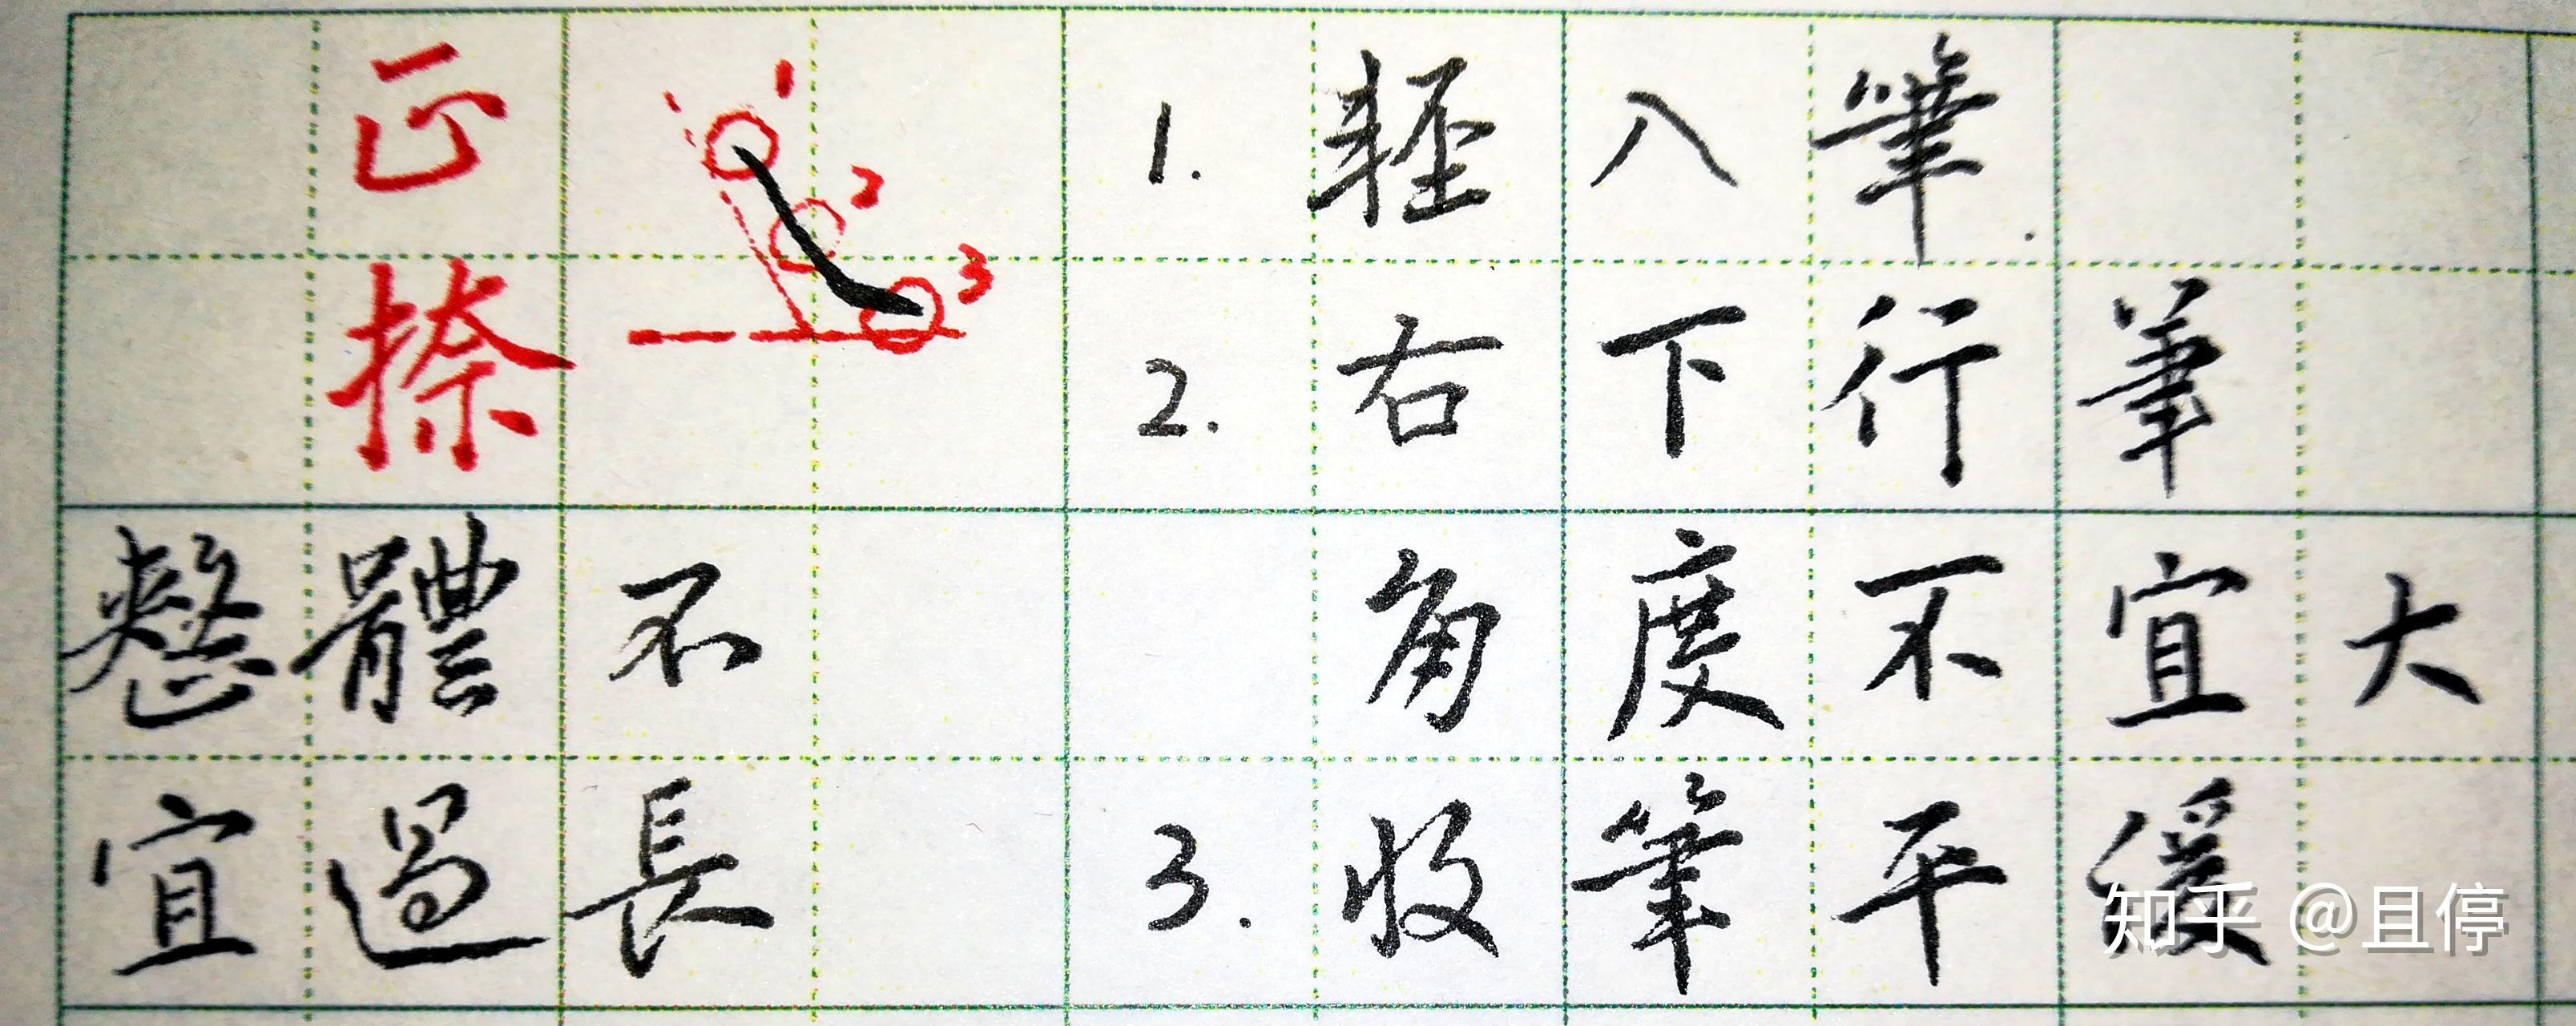 正
捺
1
2
3
整體不
宜過長
1. 輕入筆.
2. 右下行筆
角度不宜大
3. 收筆平緩
知乎 @且停